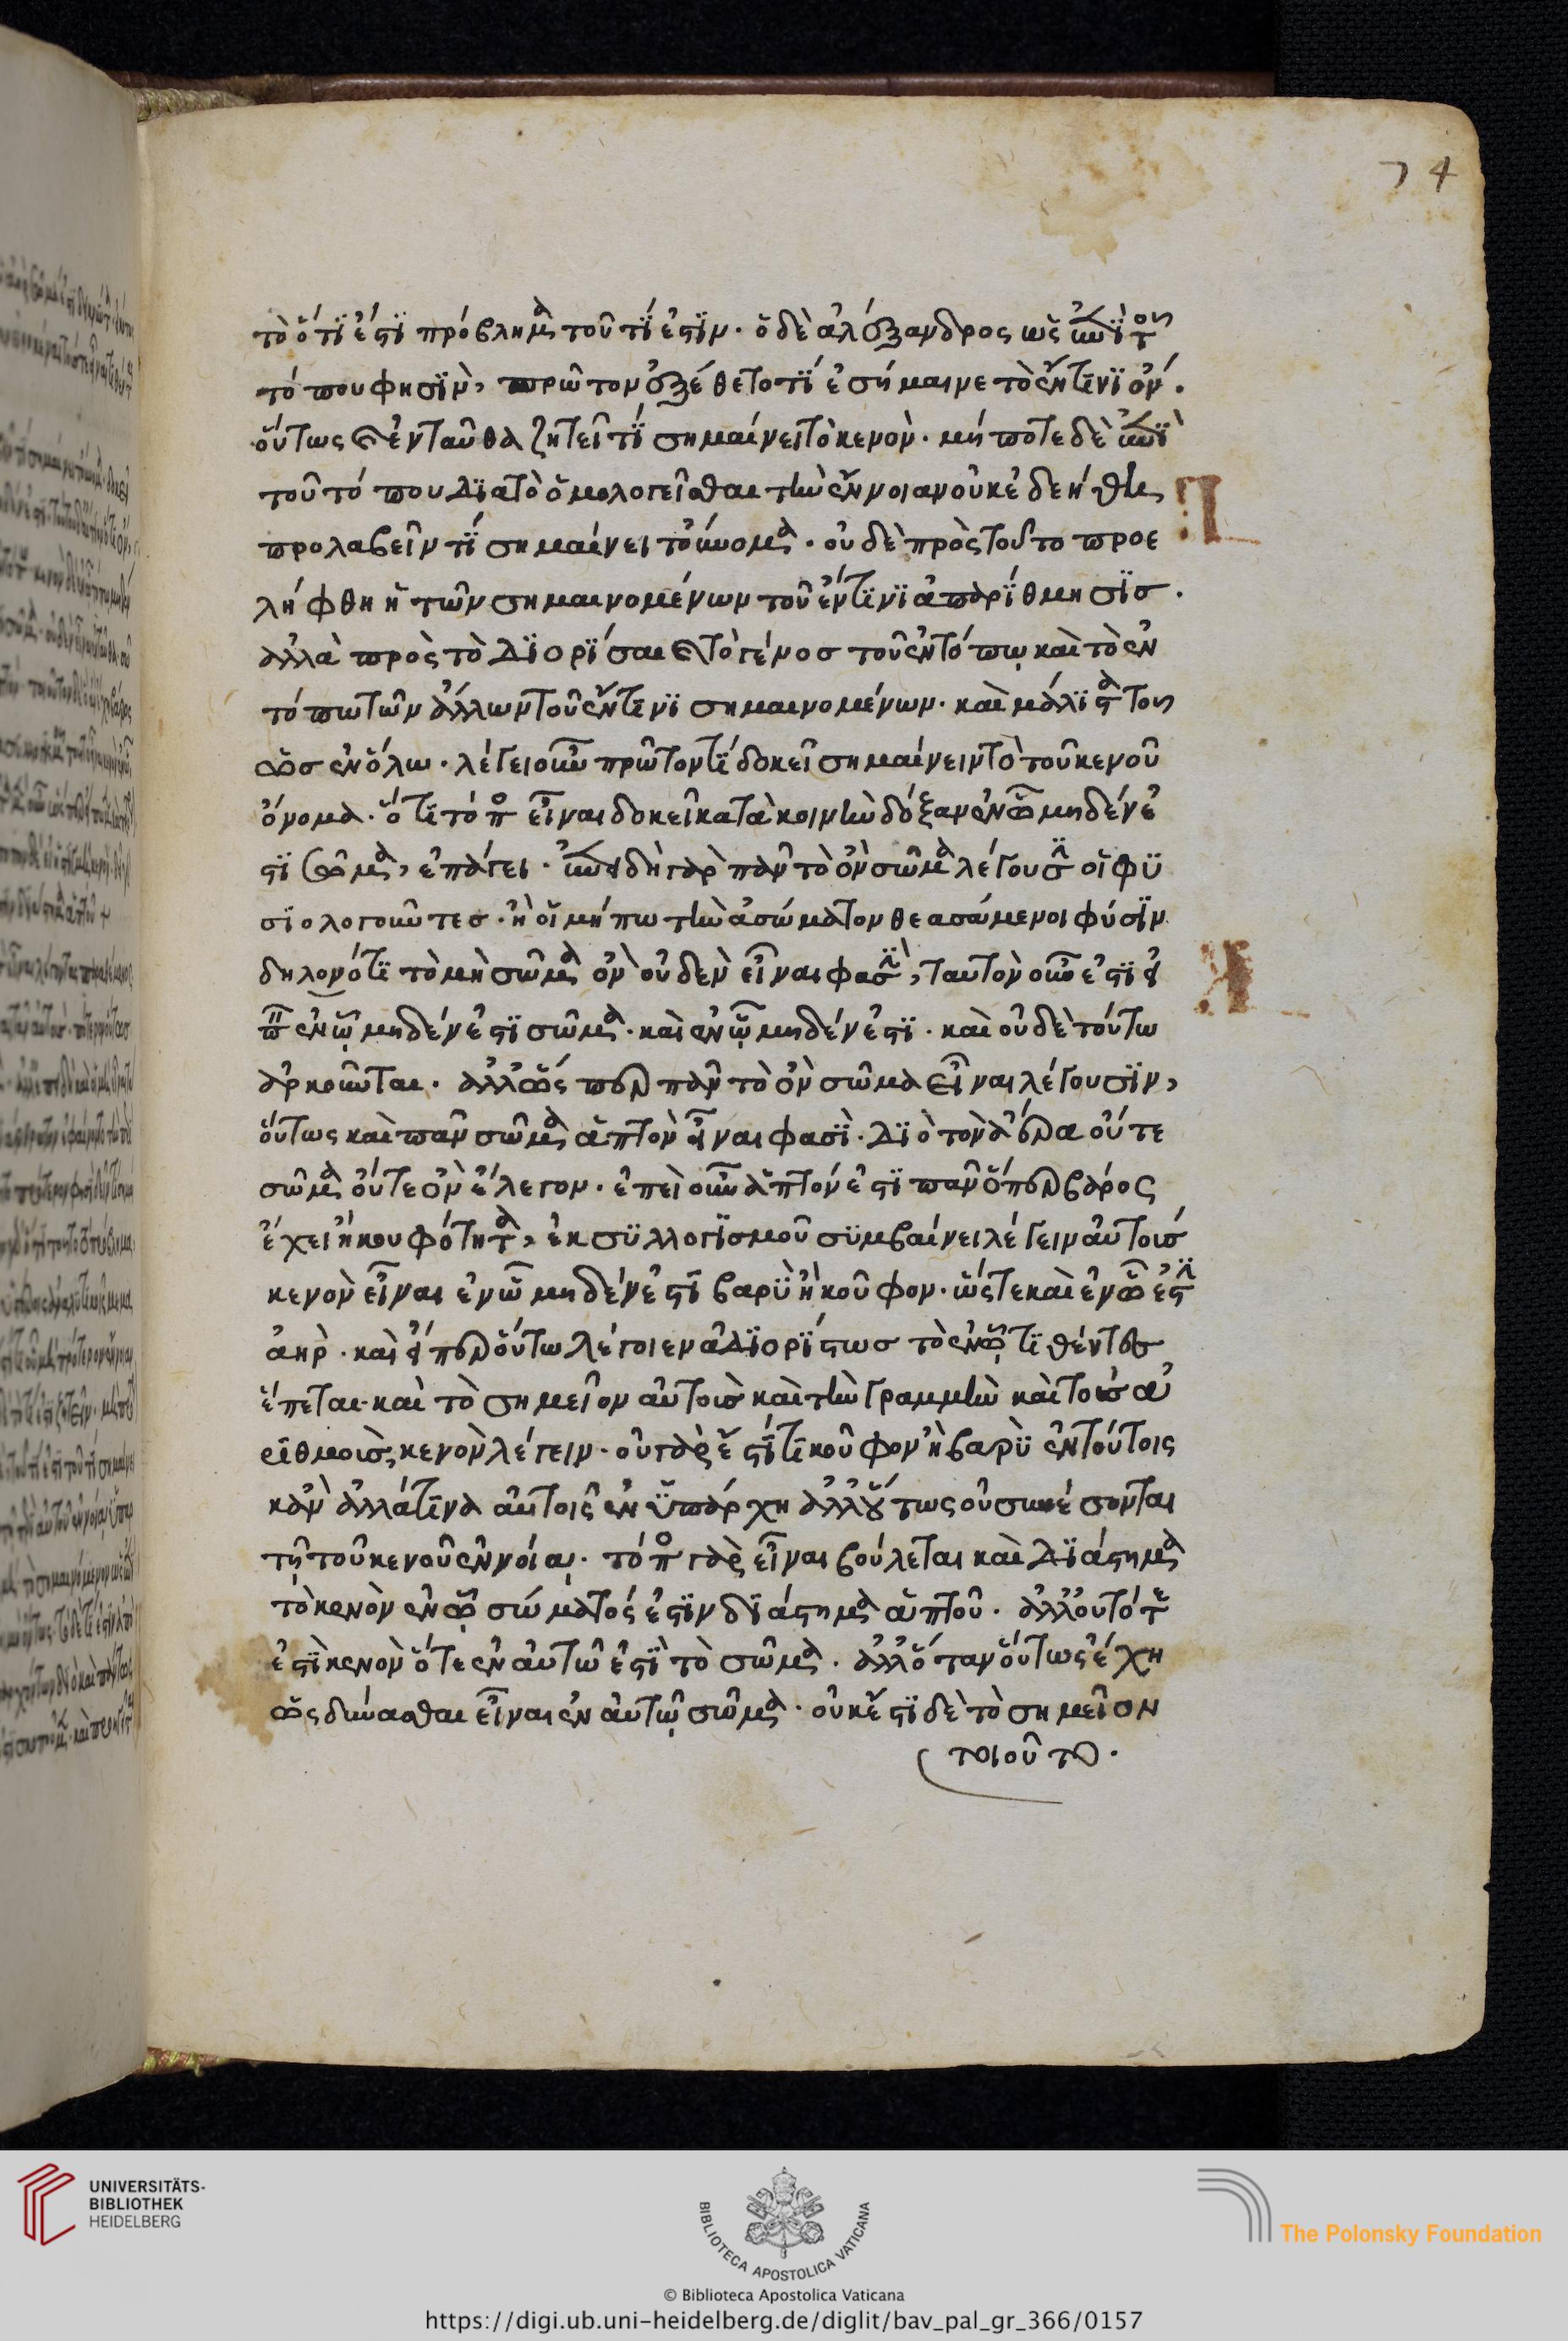 74
τὸ ὅτι ἐστι πρόβλημα τοῦ τί ἐστιν. ὁ δὲ ἀλέξανδρος ὡς ἐπὶ τοῦ
τόπου φησὶν, πρῶτον ἐξέθετο τί ἐσήμαινε τὸ ἔν τινι ὄν.
οὕτως καὶ ἐνταῦθα ζητεῖ τί σημαίνει τὸ κενὸν. μήποτε δὲ ἐπὶ
τοῦ τόπου διὰ τὸ ὁμολογεῖσθαι τὴν ἔννοιαν οὐκ ἐδεήθη
προλαβεῖν τί σημαίνει τοὔνομα. οὐδὲ πρὸς τοῦτο προε
λήφθη ἡ τῶν σημαινομένων τοῦ ἔν τινι ἀπαρίθμησις.
ἀλλὰ πρὸς τὸ διορίσαι καὶ τὸ γένος τοῦ ἐν τόπῳ καὶ τὸ ἐν
τόπω τῶν ἄλλων τοῦ ἔν τινι σημαινομένων. καὶ μάλιστα τοῦ
ὡς ἐν ὅλω. λέγει οὖν πρῶτον τί δοκεῖ σημαίνειν τὸ τοῦ κενοῦ
ὄνομα. ὅτι τόπος εἶναι δοκεῖ κατὰ κοινὴν δόξαν ἐν ᾧ μηδέν ἐ
στι σῶμα, ἐπάγει. ἐπειδὴ γὰρ πᾶν τὸ ὂν σῶμα λέγουσιν οἱ φυ
σιολογοῦντες. ἢ οἱ μήπω τὴν ἀσώματον θεασάμενοι φύσιν
δηλονότι τὸ μὴ σῶμα ὂν οὐδὲν εἶναι φασὶν, ταυτὸν οὖν ἐστι εἰ
πεῖν ἐν ᾧ μηδέν ἐστι σῶμα. καὶ ἐν ᾧ μηδέν ἐστι. καὶ οὐδὲ τούτω
ἀρκοῦνται. ἀλλ' ὥσπερ πᾶν τὸ ὂν σῶμα εἶναι λέγουσιν,
οὕτως καὶ πᾶν σῶμα ἁπτὸν εἶναι φασὶ. διὸ τὸν ἀέρα οὔτε
σῶμα οὔτε ὂν ἔλεγον. ἐπεὶ οὖν ἁπτόν ἐστι πᾶν ὅπερ βάρος
ἔχει ἢ κουφότητα, ἐκ συλλογισμοῦ συμβαίνει λέγειν αὐτοῖς
κενὸν εἶναι ἐν ὧ μηδέν ἐστὶ βαρὺ ἢ κοῦφον. ὥστε καὶ ἐν ᾧ ἐστὶν
ἀὴρ. καὶ εἴπερ οὕτω λέγοιεν ἀδιορίστως τὸ ἐν ᾧ τιθέντες
ἕπεται καὶ τὸ σημεῖον αὐτοῖς καὶ τὴν γραμμὴν καὶ τοὺς ἀ
ριθμοὺς κενὸν λέγειν. οὐ γὰρ ἔστί τι κοῦφον ἢ βαρὺ ἐν τούτοις
κἂν ἄλλά τινα αὐτοῖς ἐνϋπάρχη ἀλλ' οὕτως οὐ συνέσονται
τῇ τοῦ κενοῦ ἐννοίᾳ. τόπος γὰρ εἶναι βούλεται καὶ διάστημα
τὸ κενὸν ἐν ᾧ σώματός ἐστιν διάστημα ἁπτοῦ. ἀλλ' οὐ τότε
ἐστὶ κενὸν ὅτε ἐν αὐτῶ ἐστὶ τὸ σῶμα. ἀλλ' ὅταν οὕτως ἔχη
ὡς δύνασθαι εἶναι ἐν αὐτῷ σῶμα. οὐκ ἔστι δὲ τὸ σημεῖον
τοιοῦτο.
UNIVERSITÄTS-
BIBLIOTHEK
HEIDELBERG
BIBLIOTECA APOSTOLICA VATICANA
The Polonsky Foundation
© Biblioteca Apostolica Vaticana
https://digi.ub.uni-heidelberg.de/diglit/bav_pal_gr_366/0157